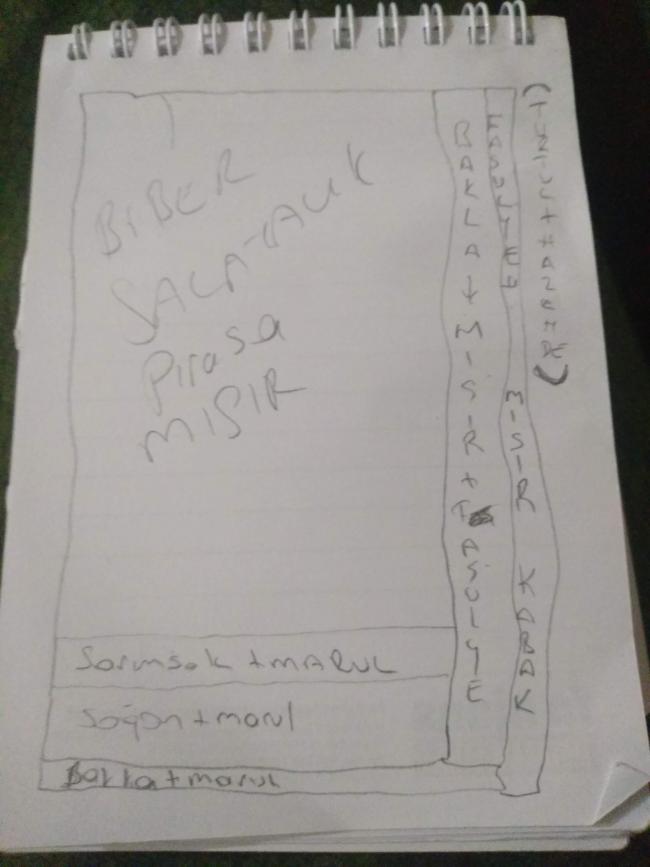 BİBER
SALATALIK
Pırasa
MISIR
Sarımsak + MARUL
Soğan + marul
Bakla + marul
BAKLA + MISIR + FASULYE
FASULYE
MISIR KABAK